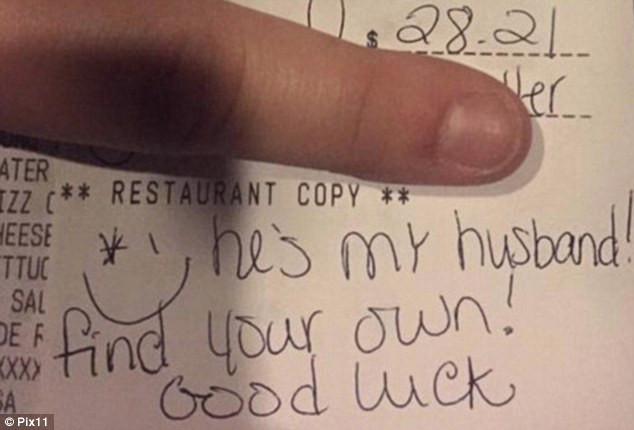 $ 28.21
ATER
IZZ C ** RESTAURANT COPY **
HEESE
he's my husband!
TTUC
SAL
find your own!
DE F
XXXX
Good luck
SA
© Pix11